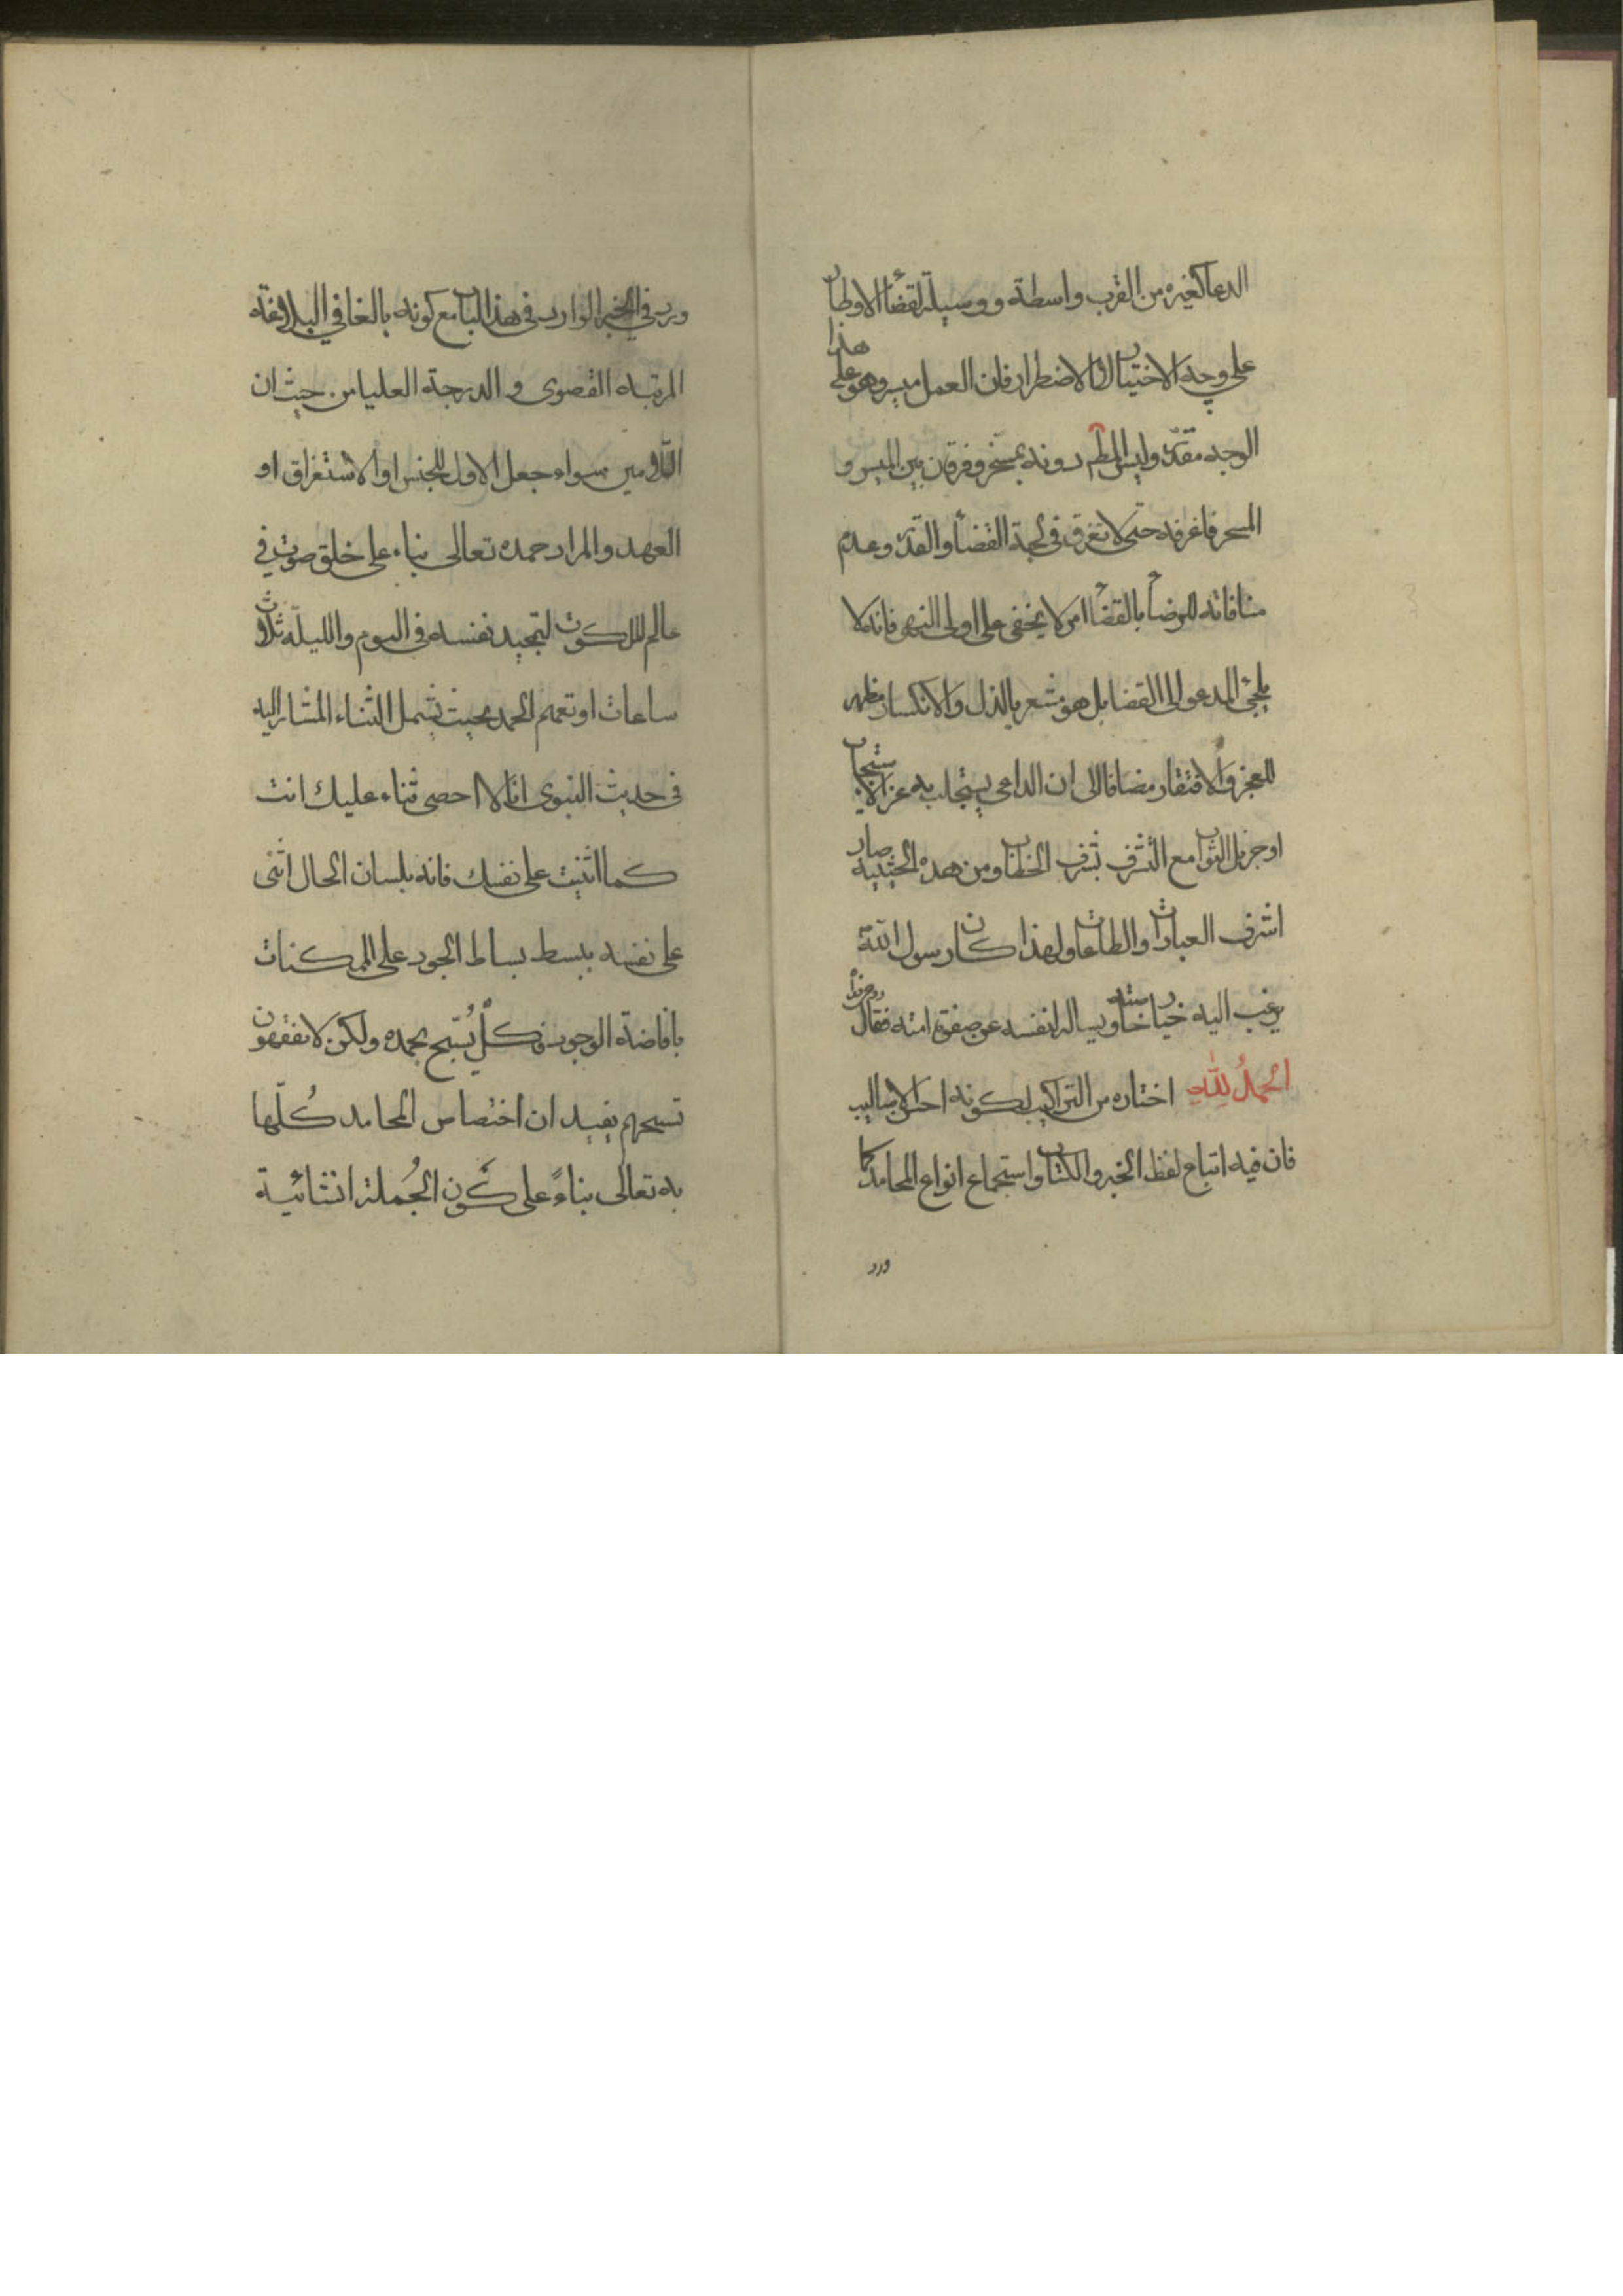 الدعا كغيره من القرب واسطة ووسيلة لقضأ الاوطار
على وجه الاختيار لا الاضطرار فان العمل ميسر وهو على هذا
الوجه مقدر وليس دونه بمسخر وفرقان بين الميسر و
المسخر فاغرفه حتى لا تغرق في لجة القضأ والقدر وعدم
منافاته للرضأ بالقضأ امر لا يخفى على اولى النهى فانه لا
يلجئ المدعو الى القضا بل هو مشعر بالذل والانكسار مظهر
للعجز والافتقار مضافا الى ان الداعي يستجلب به عز الاستجاب
او جزيل الثواب مع التشرف بشرف الخطاب ومن هذه الحيثية صار
اشرف العبادات والطاعات ولهذا كان رسول الله
يرغب اليه ويساله لنفسه عن صفوة امته فقال
الحمدُ لِلّٰهِ اختاره من التراكيب لكونه احد الاساليب
فان فيه اتباع لفظ الخبر والكتاب واستجماع انواع المحامد كما
ورد
ورد في الخبر الوارد في هذا الباب مع كونه بالغا في البلاغة
المرتبه القصوى و الدرجة العليا من حيث ان
اللامين سواء جعل الاول للجنس او الاستغراق او
العهد والمراد حمده تعالى بناء على خلق صوت في
عالم الملكوت لتمجيد نفسه في اليوم والليلة ثلاث
ساعات او تعميم الحمد بحيث يشمل الثناء المشار اليه
في حديث النبوى انا لا احصى ثناء عليك انت
كما اثنيت على نفسك فانه بلسان الحال اثنى
على نفسه ببسط بساط الجود على الممكنات
بافاضة الوجود وكلٌ يُسّبح بحمده ولكن لا تفقهون
تسبيحهم يفيد ان اختصاص المحامد كُلّها
به تعالى بناءً على كون الجُملة انشائية